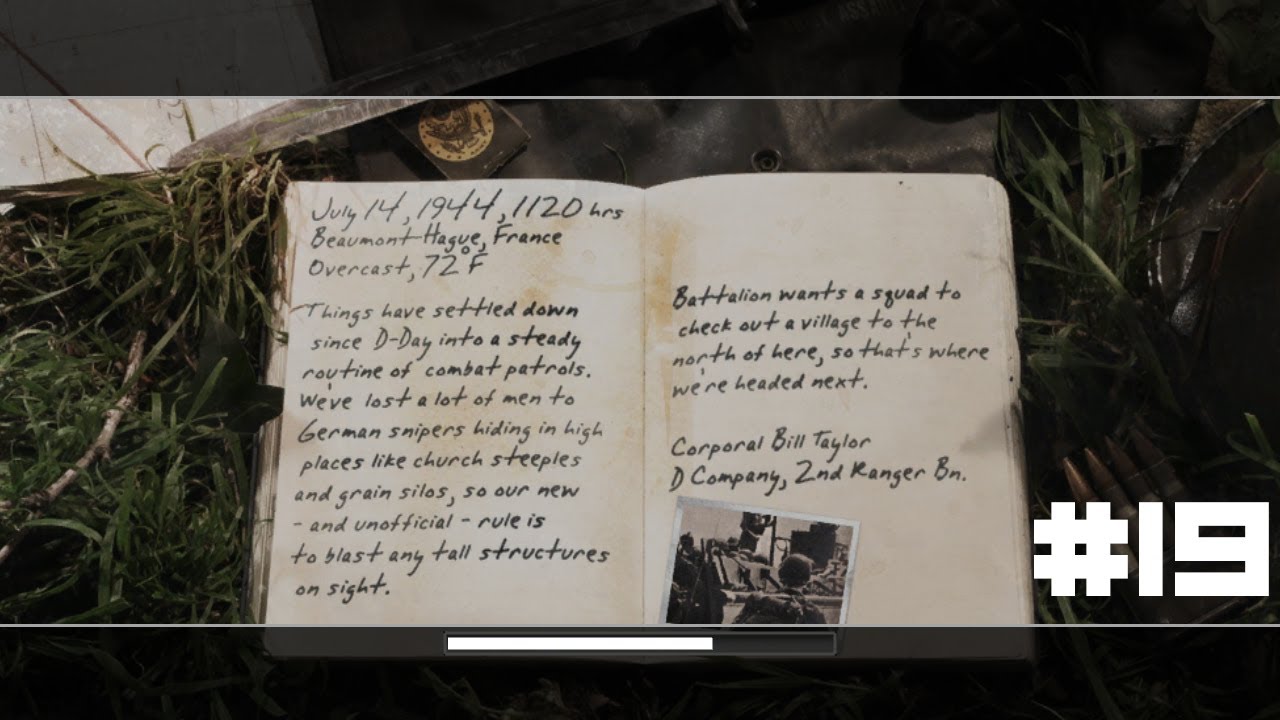 ASSAUL
July 14, 1944, 1120 hrs
Beaumont-Hague, France
Overcast, 72°F
Things have settled down
since D-Day into a steady
routine of combat patrols.
We've lost a lot of men to
German snipers hiding in high
places like church steeples
and grain silos, so our new
- and unofficial - rule is
to blast any tall structures
on sight.
Battalion wants a squad to
check out a village to the
north of here, so that's where
we're headed next.
Corporal Bill Taylor
D Company, 2nd Ranger Bn.
#19